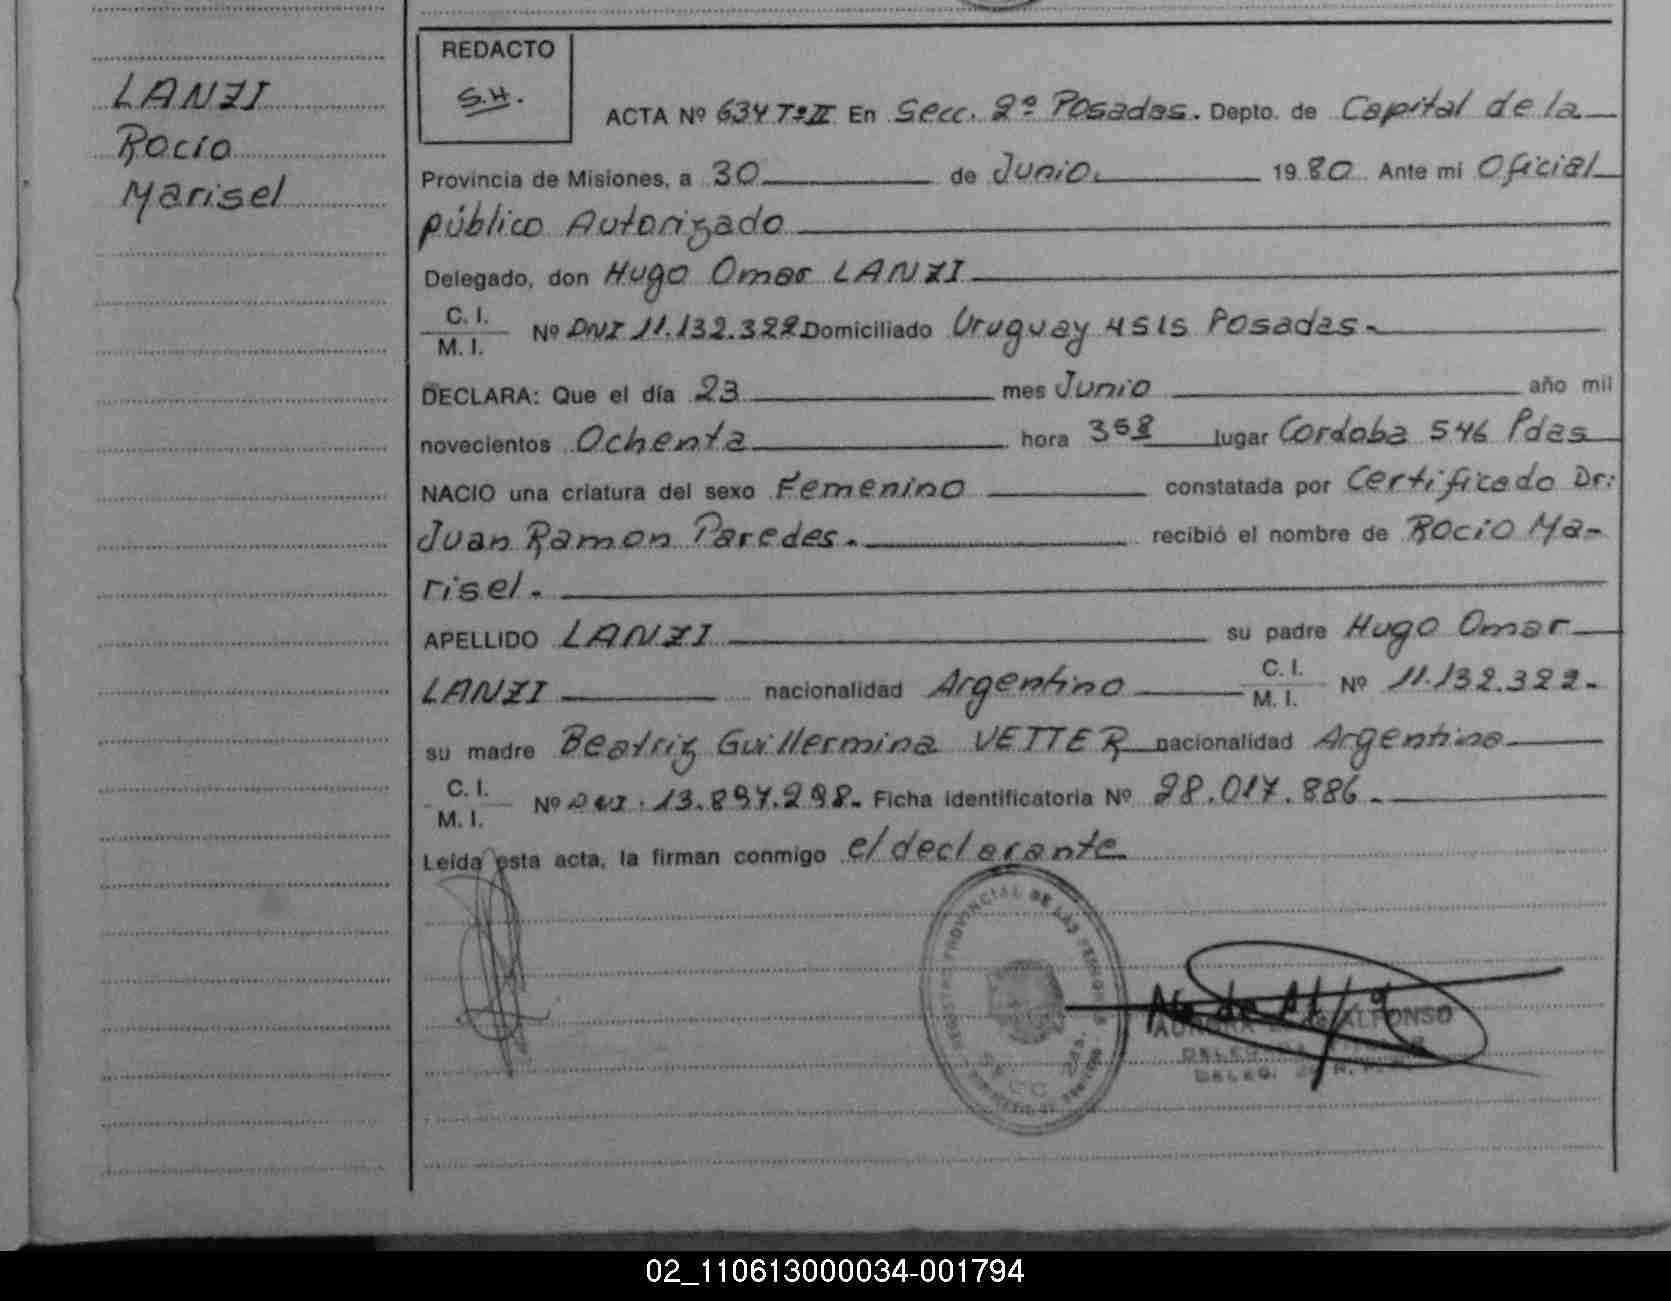 LANZI
Rocío
Marisel
REDACTO
S.H.
ACTA Nº 634 Tº II En Secc. 2º Posadas. Depto. de Capital de la
Provincia de Misiones, a 30 de Junio. 1980 Ante mi Oficial
público Autorizado
Delegado, don Hugo Omar LANZI
C. I.
M. I. Nº DNI 11.132.322 Domiciliado Uruguay 4515 Posadas
DECLARA: Que el día 23 mes Junio año mil
novecientos Ochenta hora 358 lugar Cordoba 546 Pdas
NACIO una criatura del sexo Femenino constatada por Certificado Dr:
Juan Ramon Paredes. recibió el nombre de Rocio Ma-
risel.
APELLIDO LANZI su padre Hugo Omar
LANZI nacionalidad Argentino C. I. M. I. Nº 11.132.322.
su madre Beatriz Guillermina VETTER nacionalidad Argentina
C. I.
M. I. Nº DNI. 13.897.298. Ficha identificatoria Nº 28.017.886.
Leída esta acta, la firman conmigo el declarante
REGISTRO PROVINCIAL DE LAS PERSONAS
SECC. 2da.
ALFONSO
02_110613000034-001794